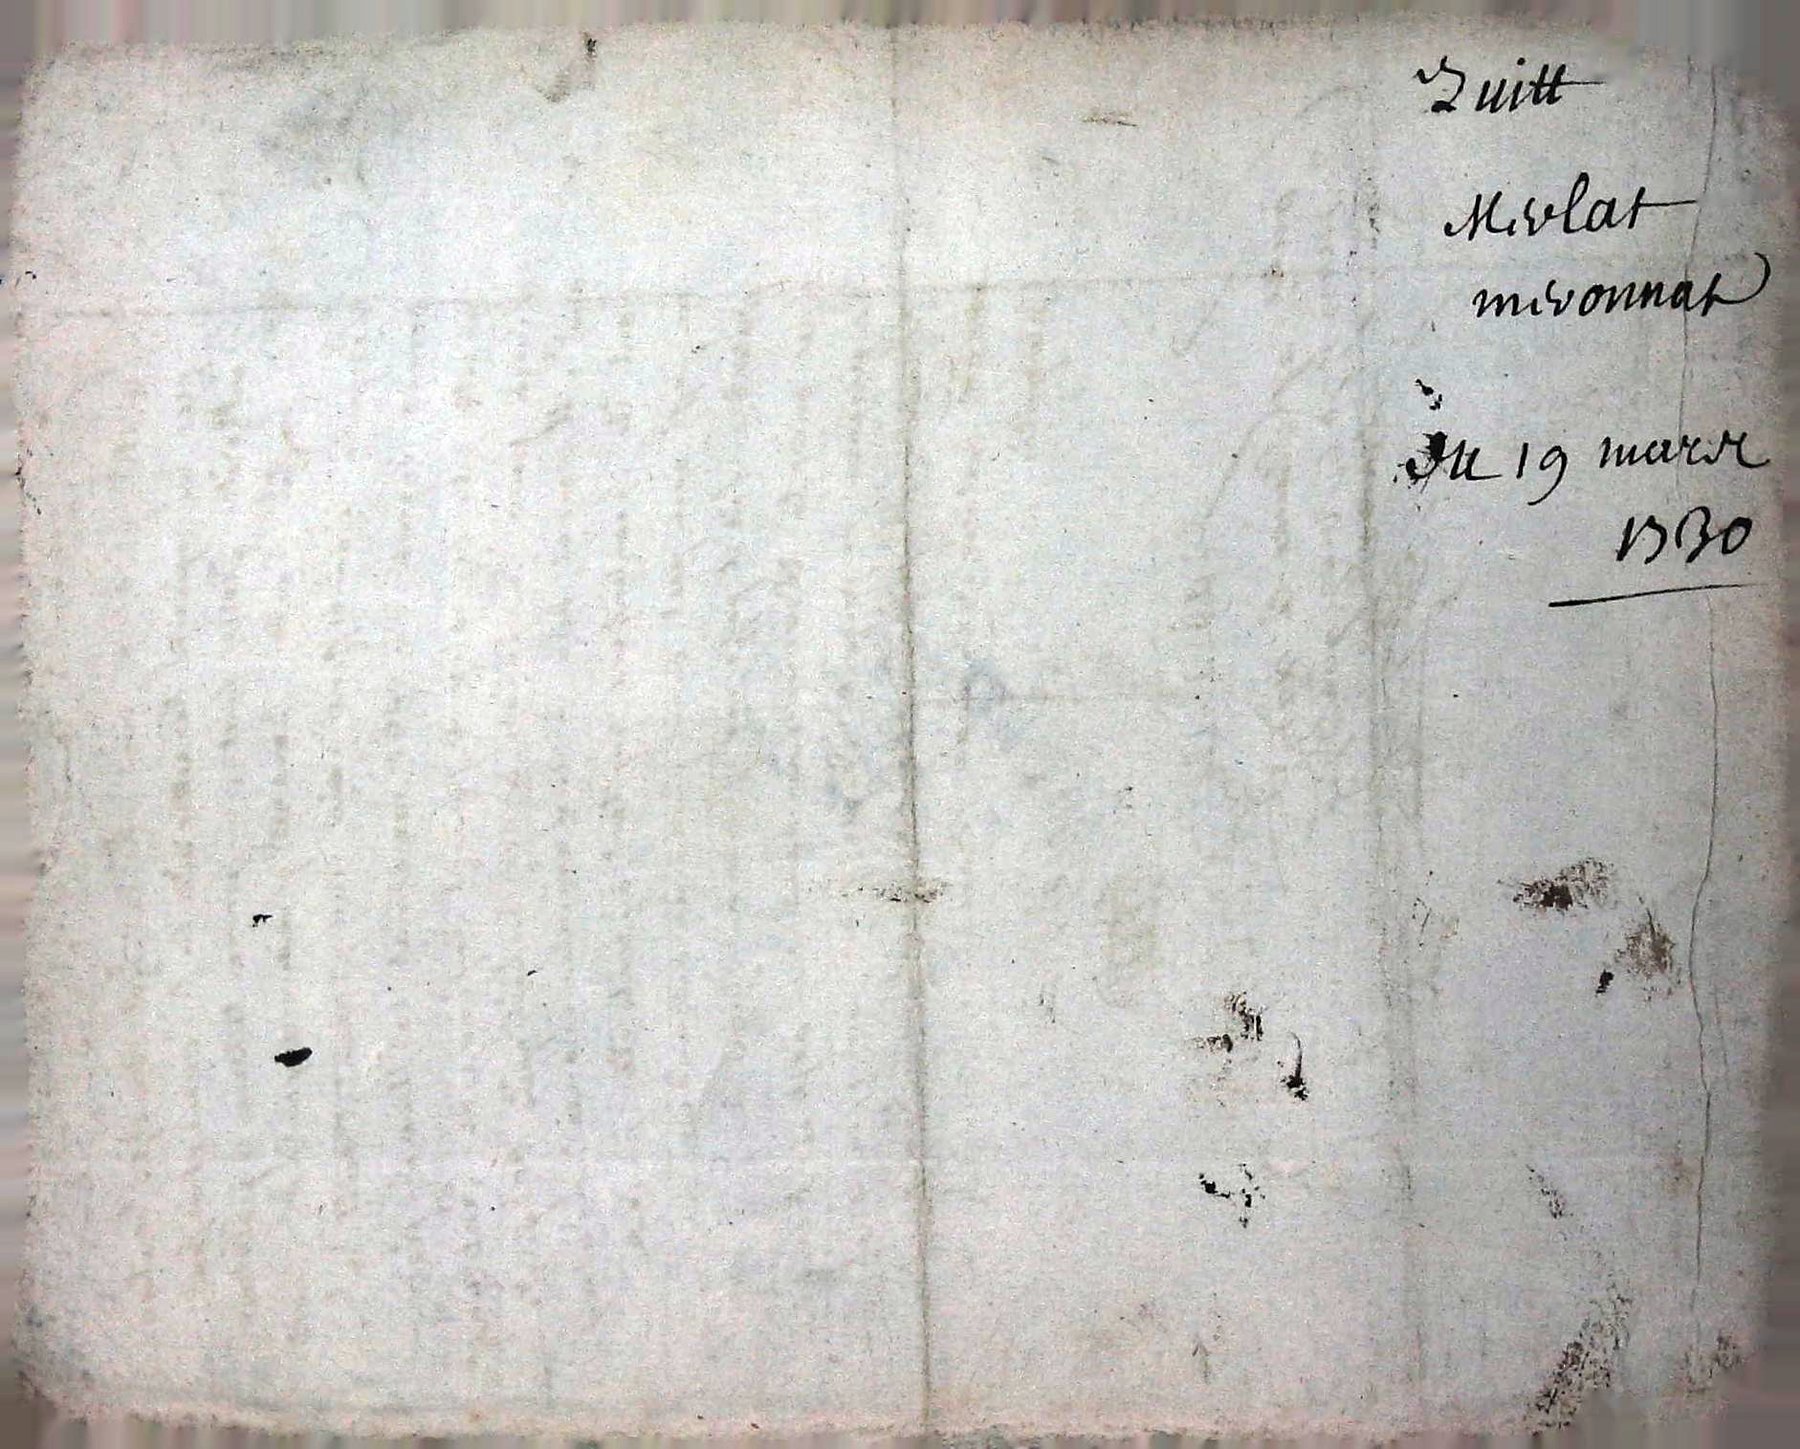 Quitt
Merlat
meronnat
Du 19 mars
1730